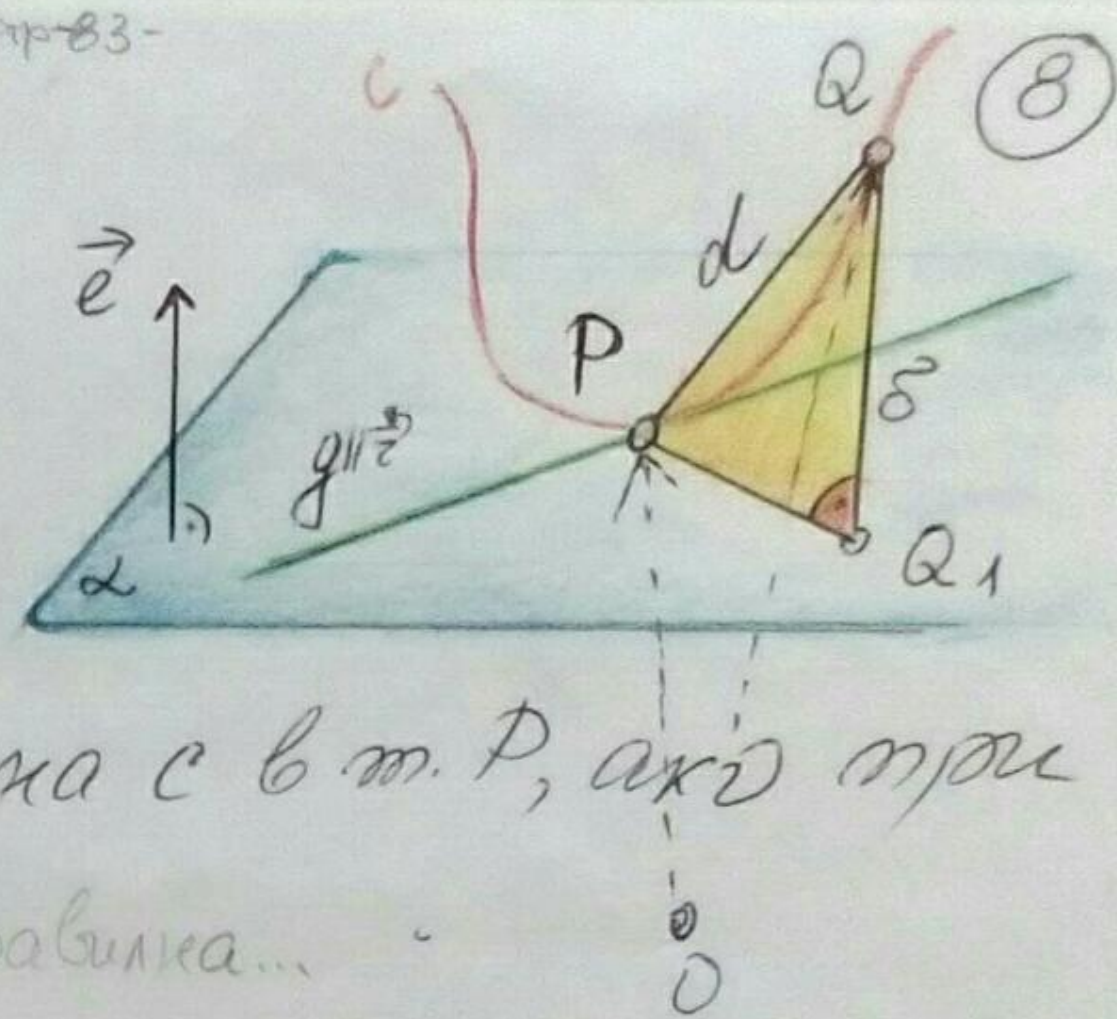 стр-83-
c
Q
8
d
e⃗
P
δ
g∥τ⃗
Q1
α
на c в т. P, ако при
авилна...
O